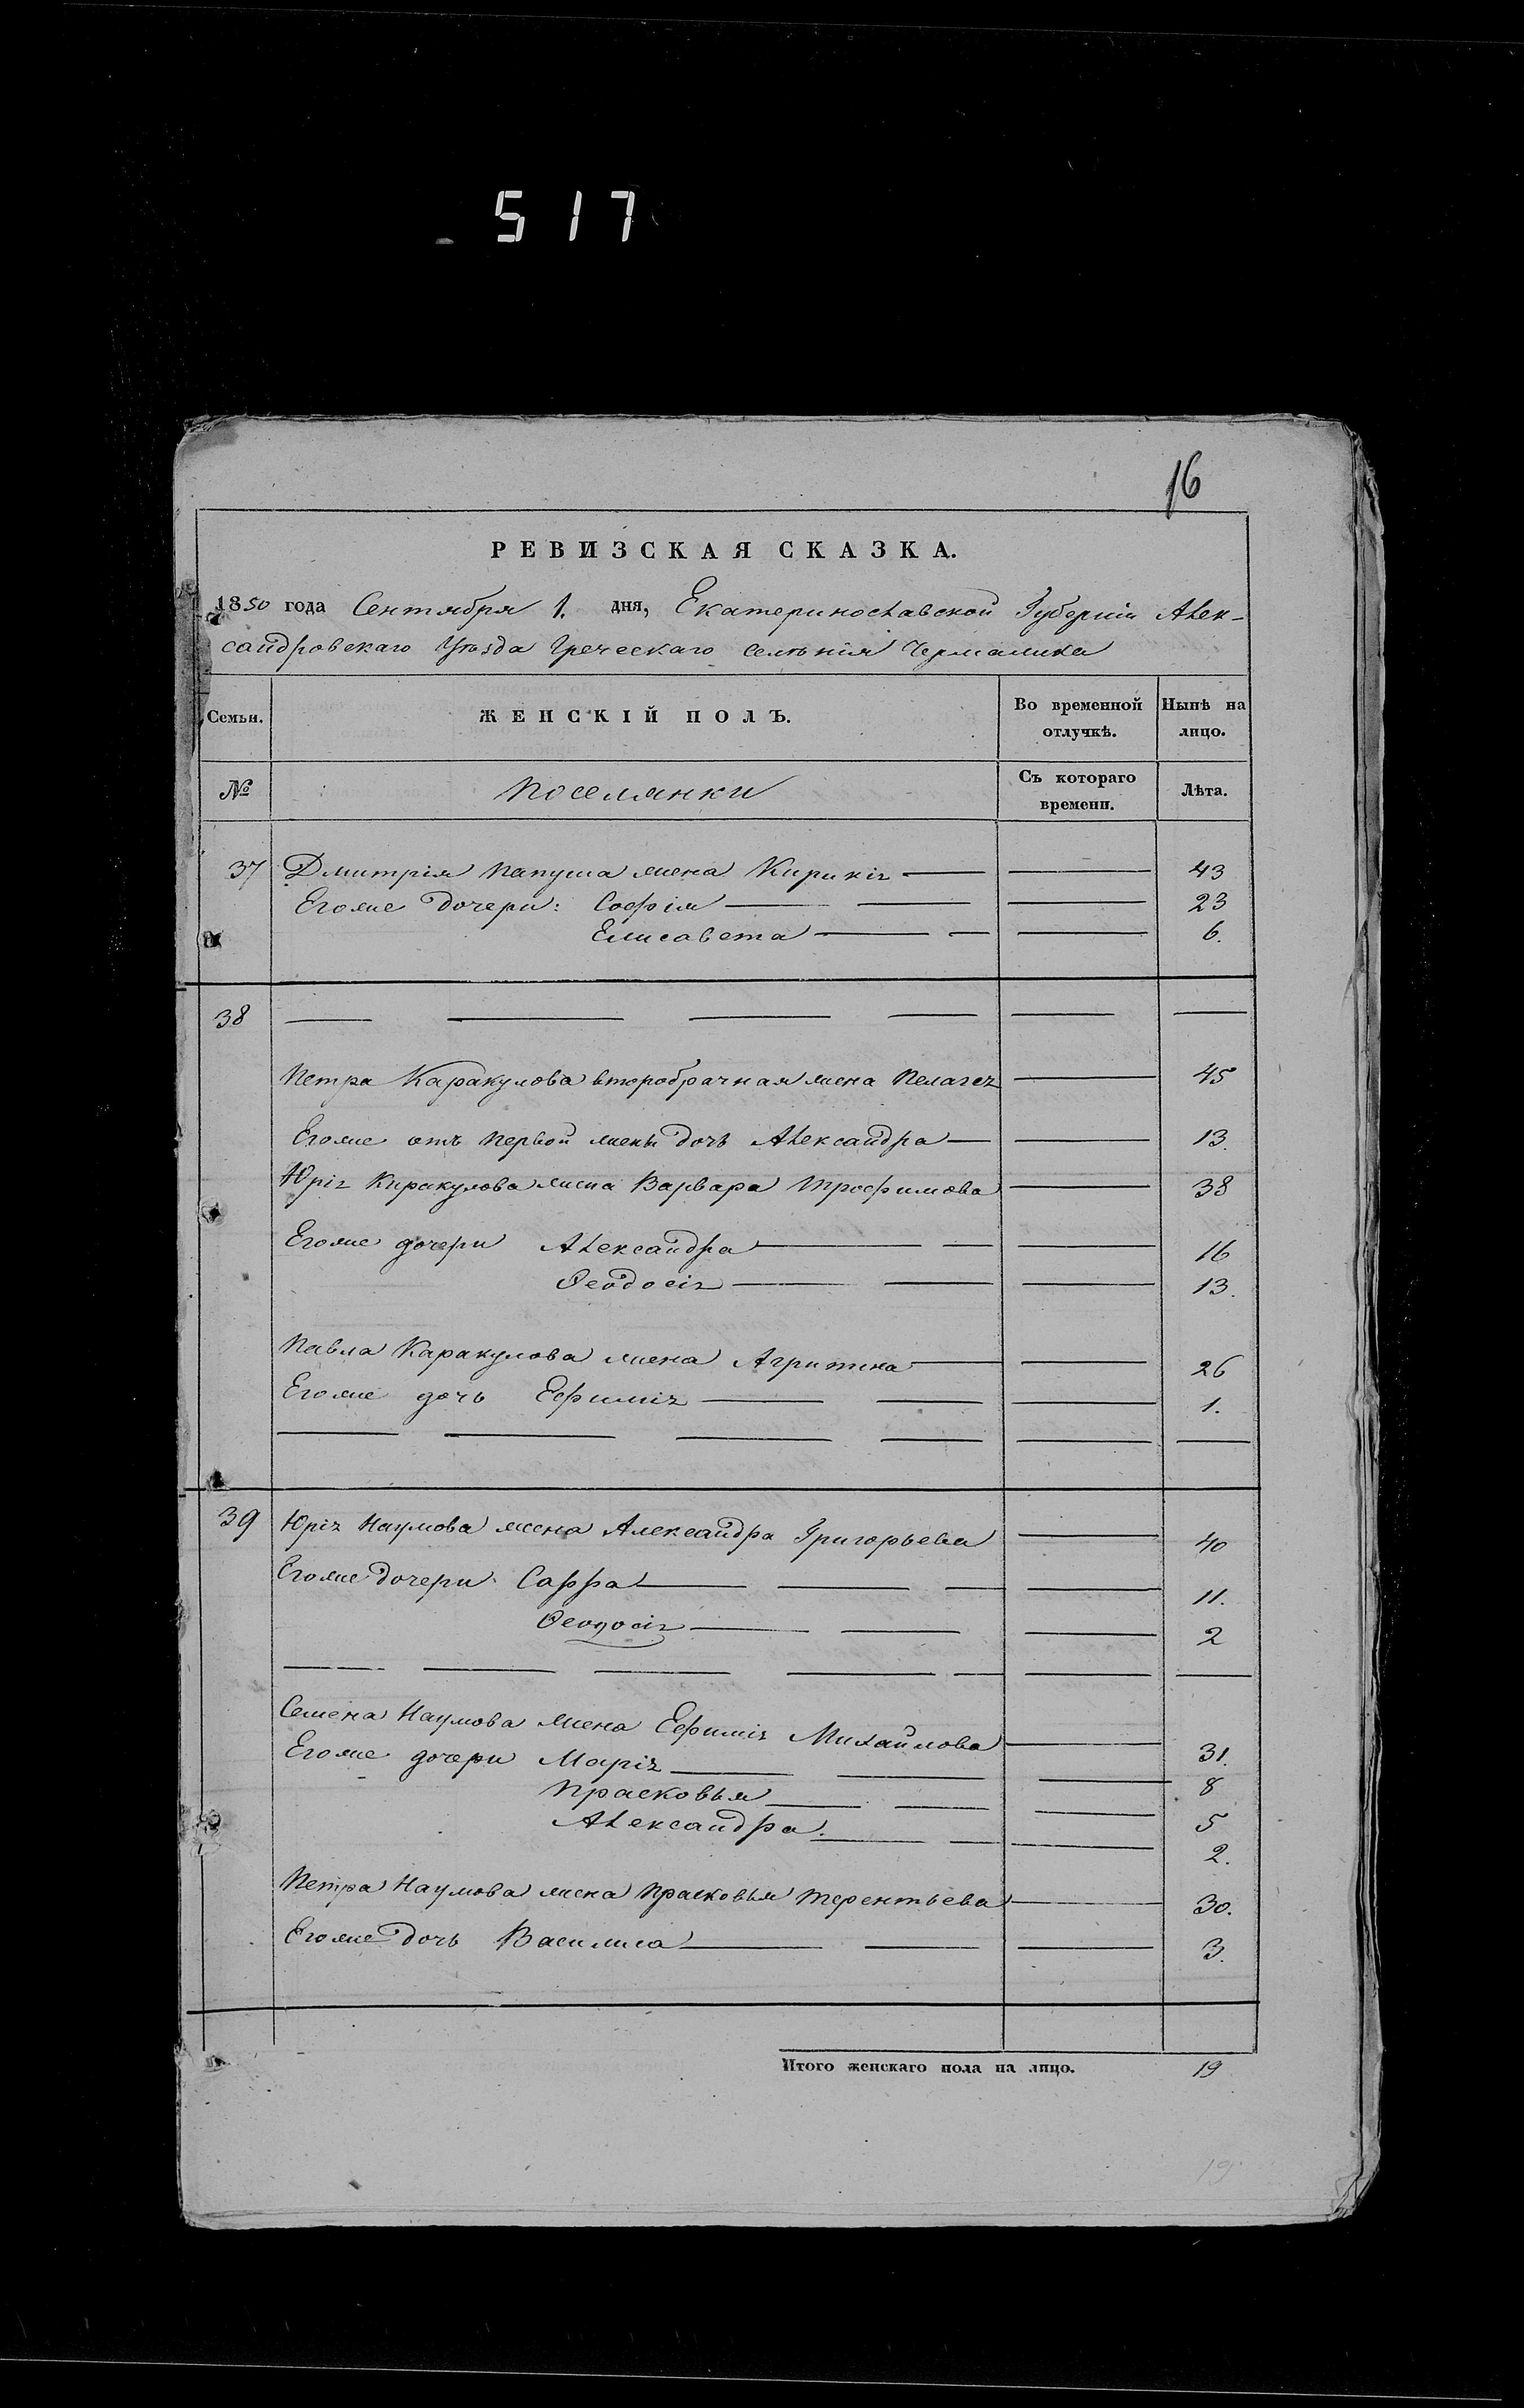 517
16
РЕВИЗСКАЯ СКАЗКА.
1850 года Сентября 1. дня, Екатеринославской Губерніи Алек-
сандровскаго Уѣзда Греческаго селѣнія Чермалика
Семьи. ЖЕНСКІЙ ПОЛЪ. Во временной отлучкѣ. Нынѣ на лицо.
№ Поселянки Съ котораго времени. Лѣта.
37 Дмитрія Папуша жена Кирикія 43
Его же Дочери: Софія 23
Елисавета 6.
38
Петра Каракулова второбрачная жена Пелагея 45
Его же отъ первой жены дочь Александра 13.
Юрія Каракулова жена Варвара Трофимова 38
Его же дочери Александра 16
Феодосія 13.
Павла Каракулова жена Агрипина 26
Его же дочь Ефимія 1.
39 Юрія Наумова жена Александра Григорьева 40
Его же дочери Сарра 11.
Феодосія 2
Семена Наумова жена Ефимія Михайлова 31.
Его же дочери Марія 8
Прасковья 5
Александра. 2.
Петра Наумова жена Прасковья Терентьева 30.
Его же дочь Василиса 3.
Итого женскаго пола на лицо. 19
19